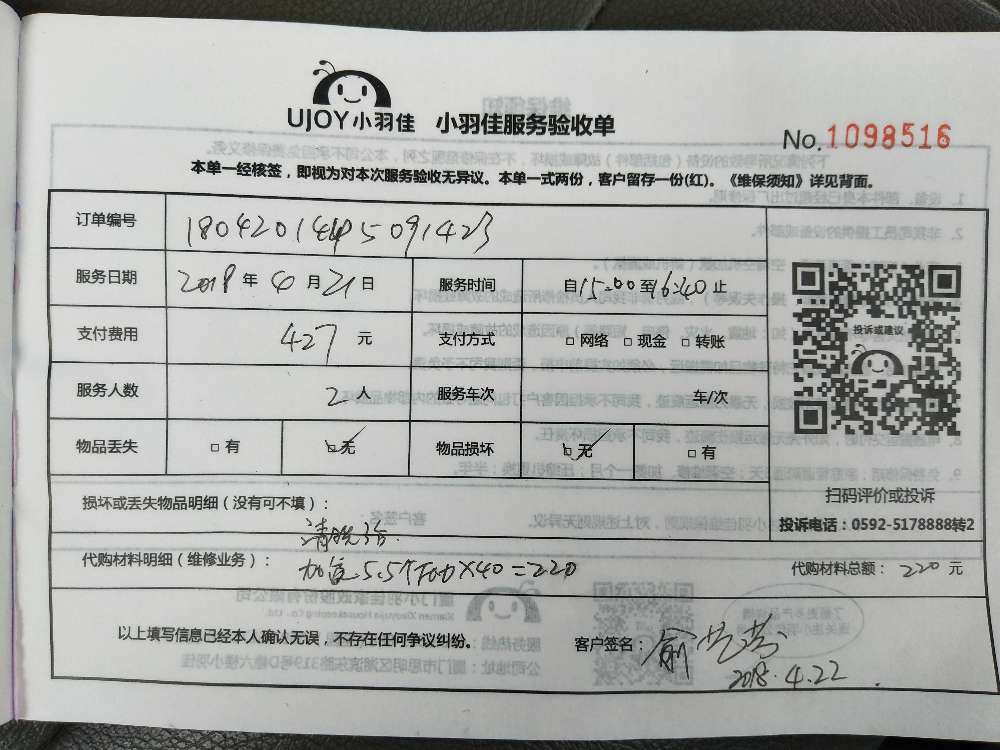 UJOY小羽佳 小羽佳服务验收单
No.1098516
本单一经核签，即视为对本次服务验收无异议。本单一式两份，客户留存一份(红)。《维保须知》详见背面。
订单编号
服务日期 2018 年 4 月 21 日 服务时间 自15:00至16:40止
支付费用 427 元 支付方式 □网络 □现金 □转账
服务人数 2 人 服务车次 车/次
物品丢失 □有 □无 物品损坏 □无 □有
投诉或建议
扫码评价或投诉
投诉电话：0592-5178888转2
损坏或丢失物品明细（没有可不填）：
代购材料明细（维修业务）： 5.5 ×40=220 代购材料总额： 220 元
以上填写信息已经本人确认无误，不存在任何争议纠纷。 客户签名： 俞
2018.4.22